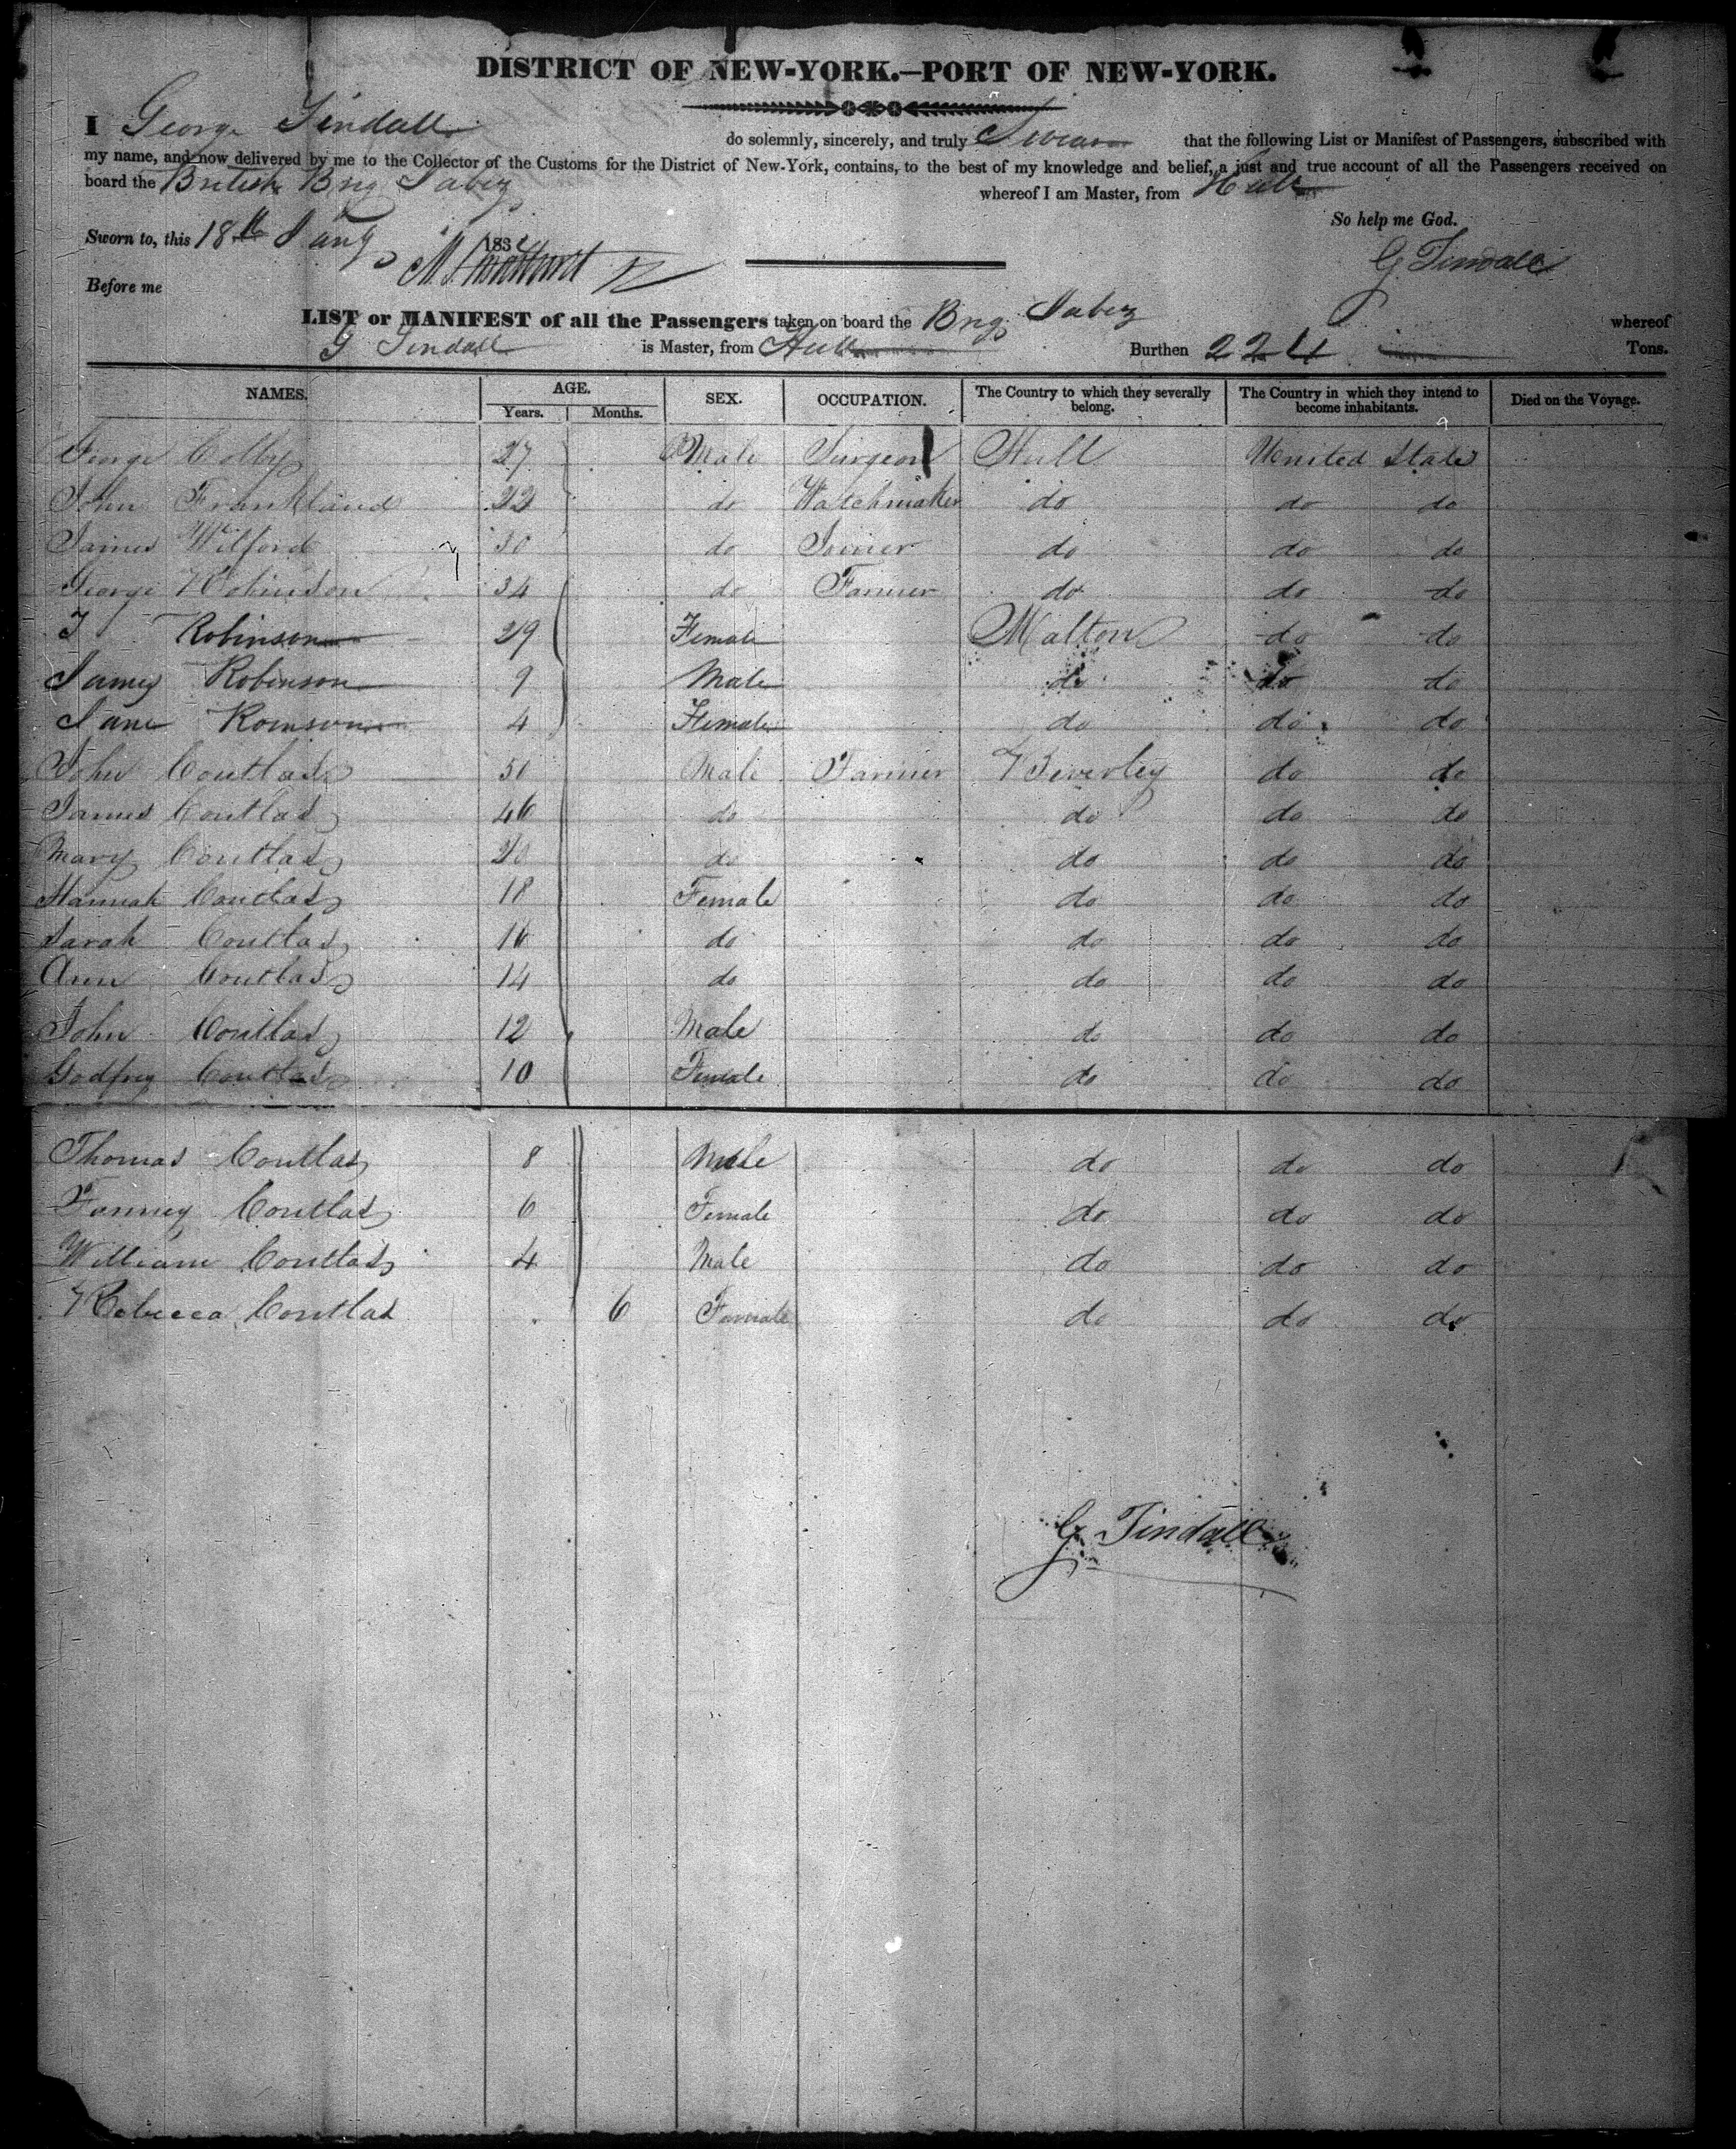 DISTRICT OF NEW-YORK.—PORT OF NEW-YORK.
I George Tindall do solemnly, sincerely, and truly Swear that the following List or Manifest of Passengers, subscribed with
my name, and now delivered by me to the Collector of the Customs for the District of New-York, contains, to the best of my knowledge and belief, a just and true account of all the Passengers received on
board the British Brig Jabez whereof I am Master, from Hull
So help me God.
Sworn to, this 18th 183
G Tindall
Before me
LIST or MANIFEST of all the Passengers taken on board the Brig Jabez whereof
G Tindall is Master, from Hull Burthen 224 Tons.
NAMES. AGE. SEX. OCCUPATION. The Country to which they severally belong. The Country in which they intend to become inhabitants. Died on the Voyage.
Years. Months.
George Colby 27 Male Surgeon Hull United State
John Frankland 22 do Watchmaker do do do
James Wilford 30 do Joiner do do do
George Robinson 34 do Farmer do do do
J Robinson 29 Female Malton do do
James Robinson 9 Male do do do
Jane Roinson 4 Female do do do
John Coutlas 50 Male Farmer Beverley do do
James Coutlas 46 do do do do
Mary Coutlas 20 do do do do
Hannah Coutlas 18 Female do do do
Sarah Coutlas 16 do do do do
Ann Coutlas 14 do do do do
John Coutlas 12 Male do do do
Godfrey Coutlas 10 Female do do do
Thomas Coutlas 8 Male do do do
Fanney Coutlas 6 Female do do do
William Coutlas 4 Male do do do
Rebecca Coutlas 6 Female do do do
G Tindall